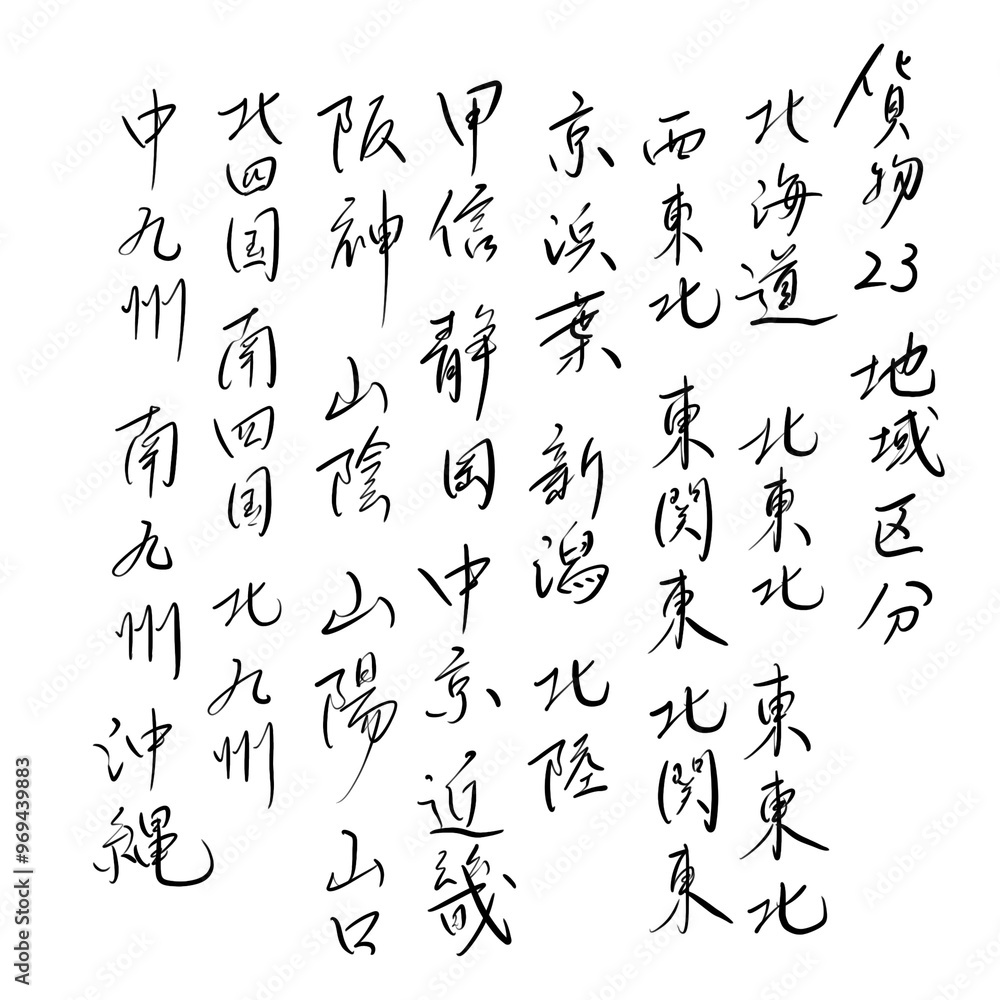 貨物23 地域区分
北海道 北東北 東東北
西東北 東関東 北関東
京浜葉 新潟 北陸
甲信 静岡 中京 近畿
阪神 山陰 山陽 山口
北四国 南四国 北九州
中九州 南九州 沖縄
Adobe Stock | #969439883